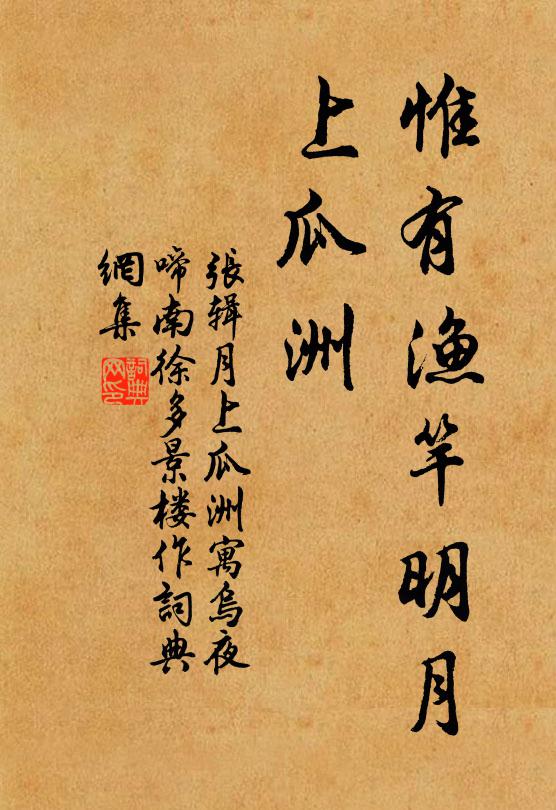 惟有漁竿明月
上瓜洲
張輯月上瓜洲寓烏夜
啼南徐多景楼作詞典
網集
詞典
网印